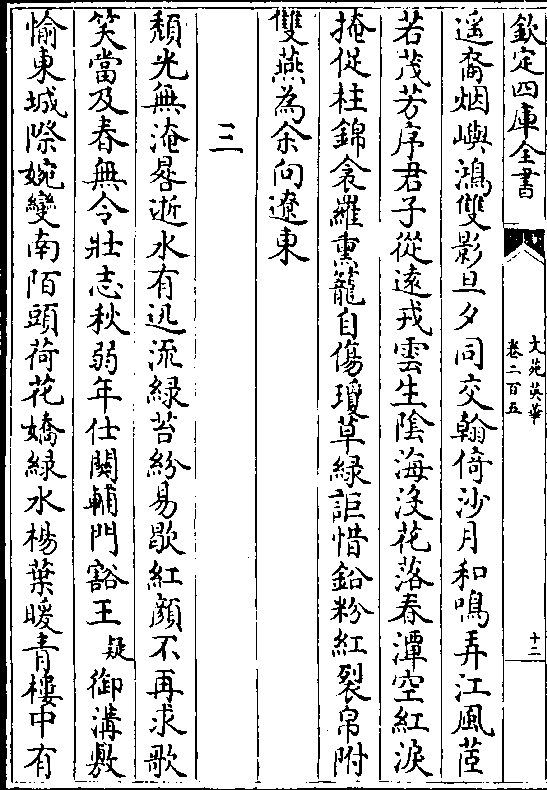 欽定四庫全書
文苑英華
卷二百五
十二
遥裔烟嶼鴻雙影旦夕同交翰倚沙月和鳴弄江風苕
若茂芳序君子從遠戎雲生陰海沒花落春潭空紅淚
掩促柱錦衾羅熏籠自傷瓊草緑詎惜鉛粉紅裂帛附
雙燕為余向遼東
三
頽光無淹晷逝水有迅流緑苔紛易歇紅顔不再求歌
笑當及春無令壯志秋弱年仕闗輔門豁王疑御溝敷
愉東城際婉孌南陌頭荷花嬌緑水楊葉暖青樓中有